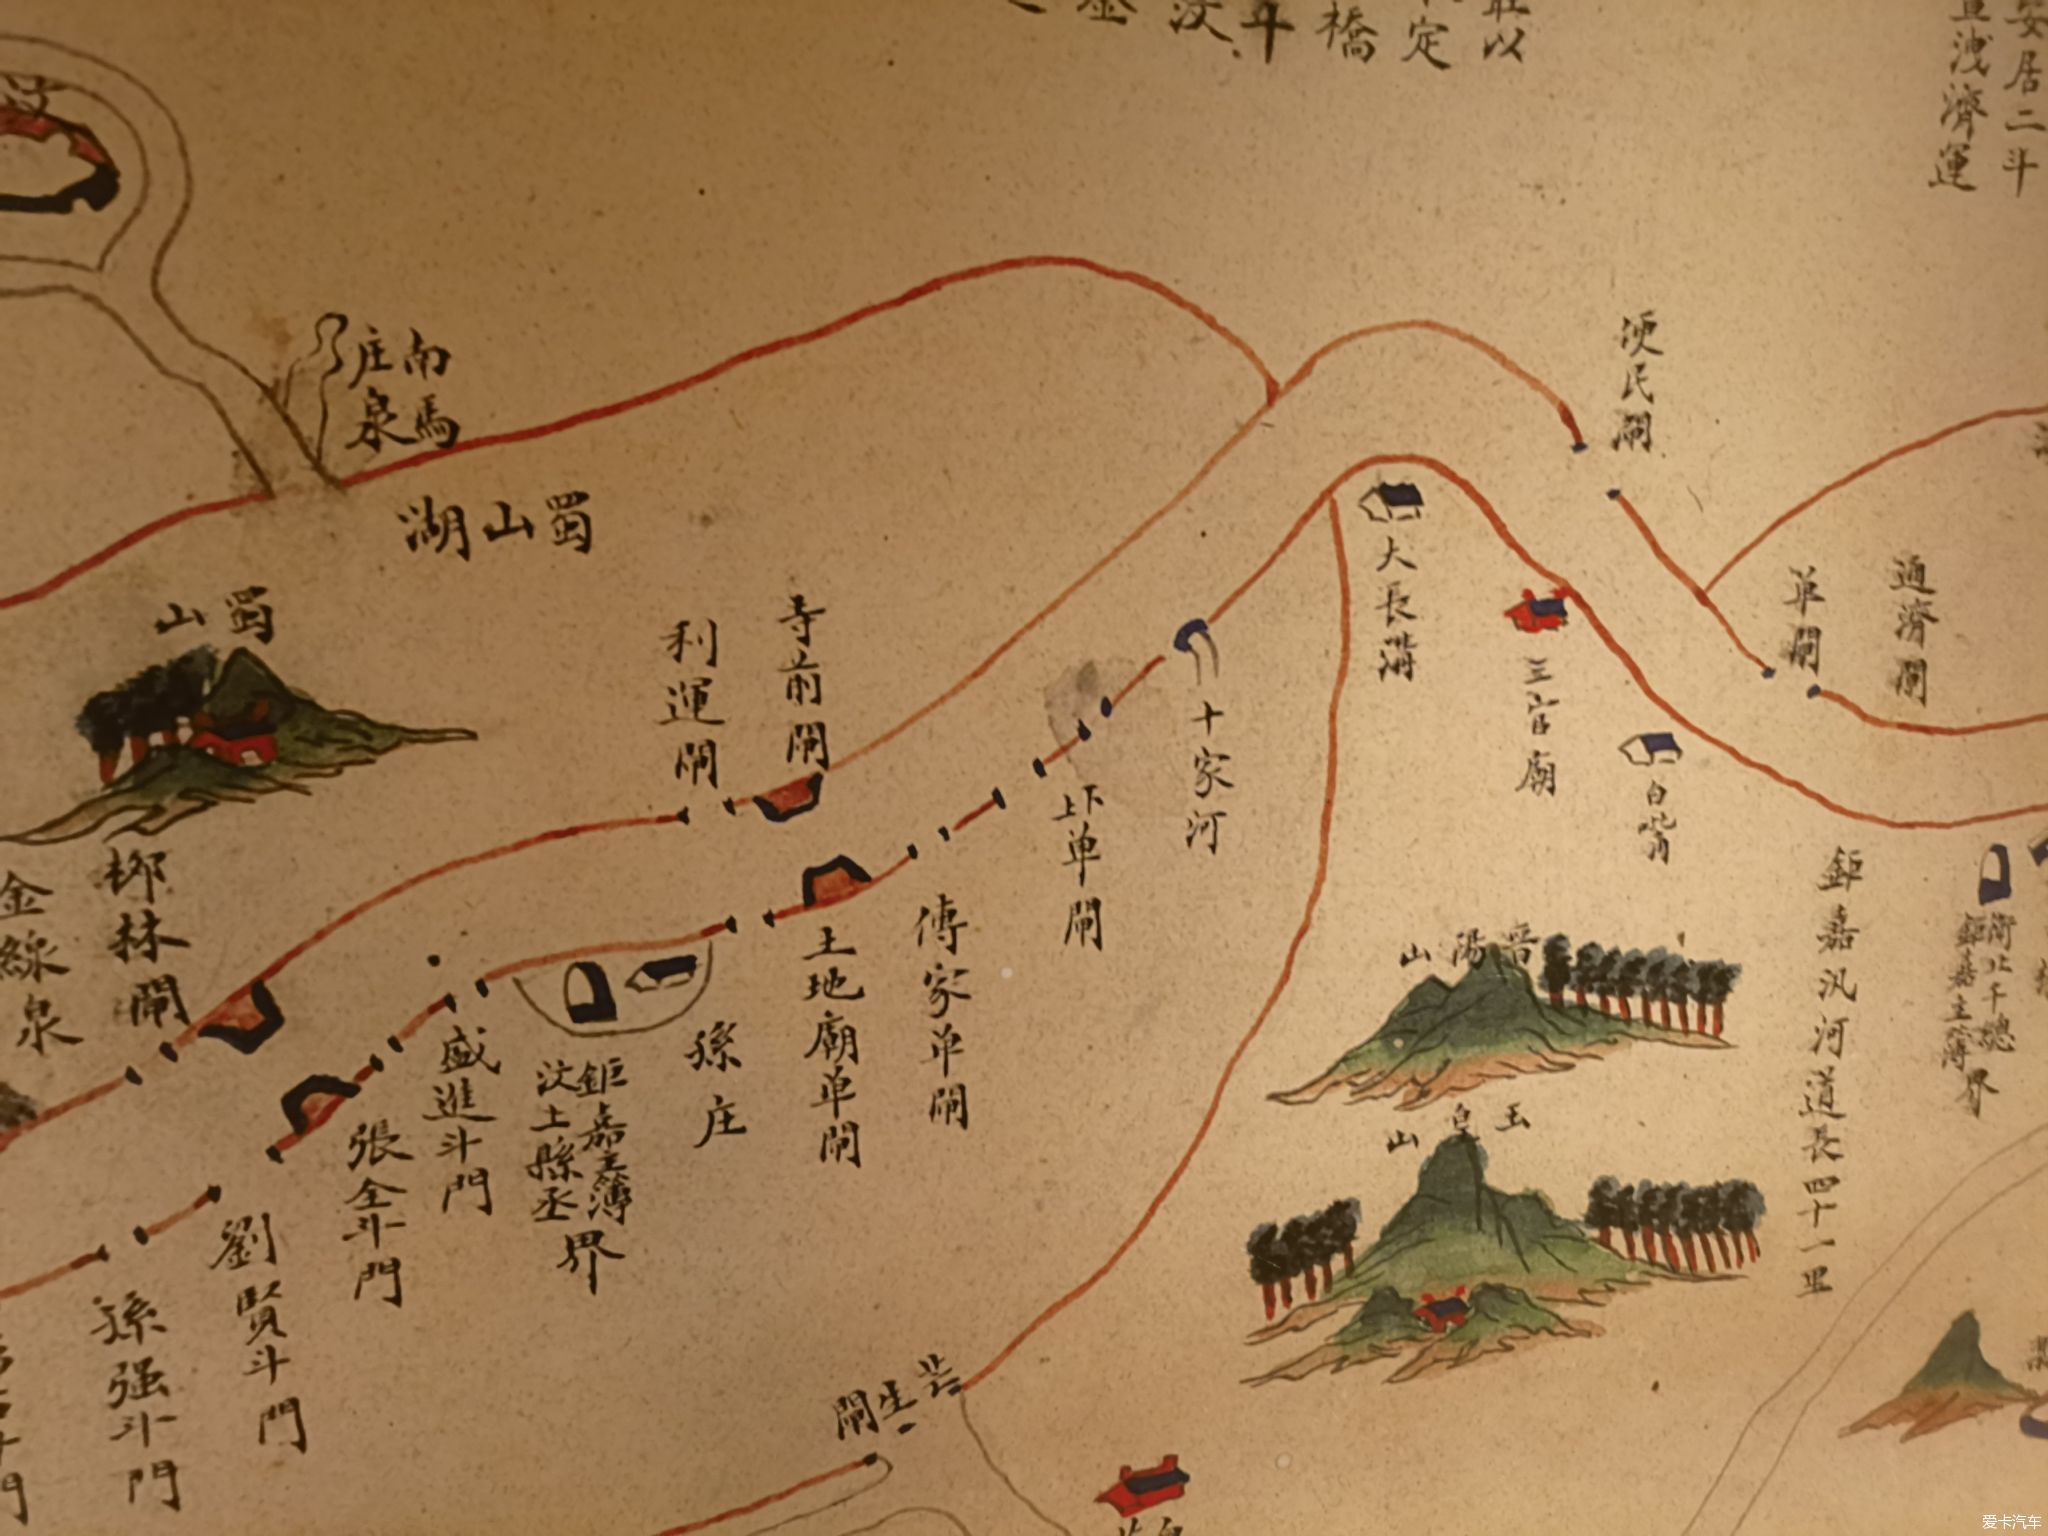 安居二斗
洩濟運
以
定
橋
斗
汶
金
汶
南馬
庄泉
蜀山湖
蜀山
便民閘
通濟閘
单閘
大長溝
三官廟
白嘴
寺前閘
利運閘
十家河
上下单閘
傅家单閘
土地廟单閘
孫庄
鉅嘉主簿
汶上縣丞
界
盛進斗門
張全斗門
劉賢斗門
孫强斗門
柳林閘
金線泉
晋陽山
玉皇山
鉅嘉汛河道長四十一里
衛北千總
鉅嘉主簿
界
芒生閘
爱卡汽车